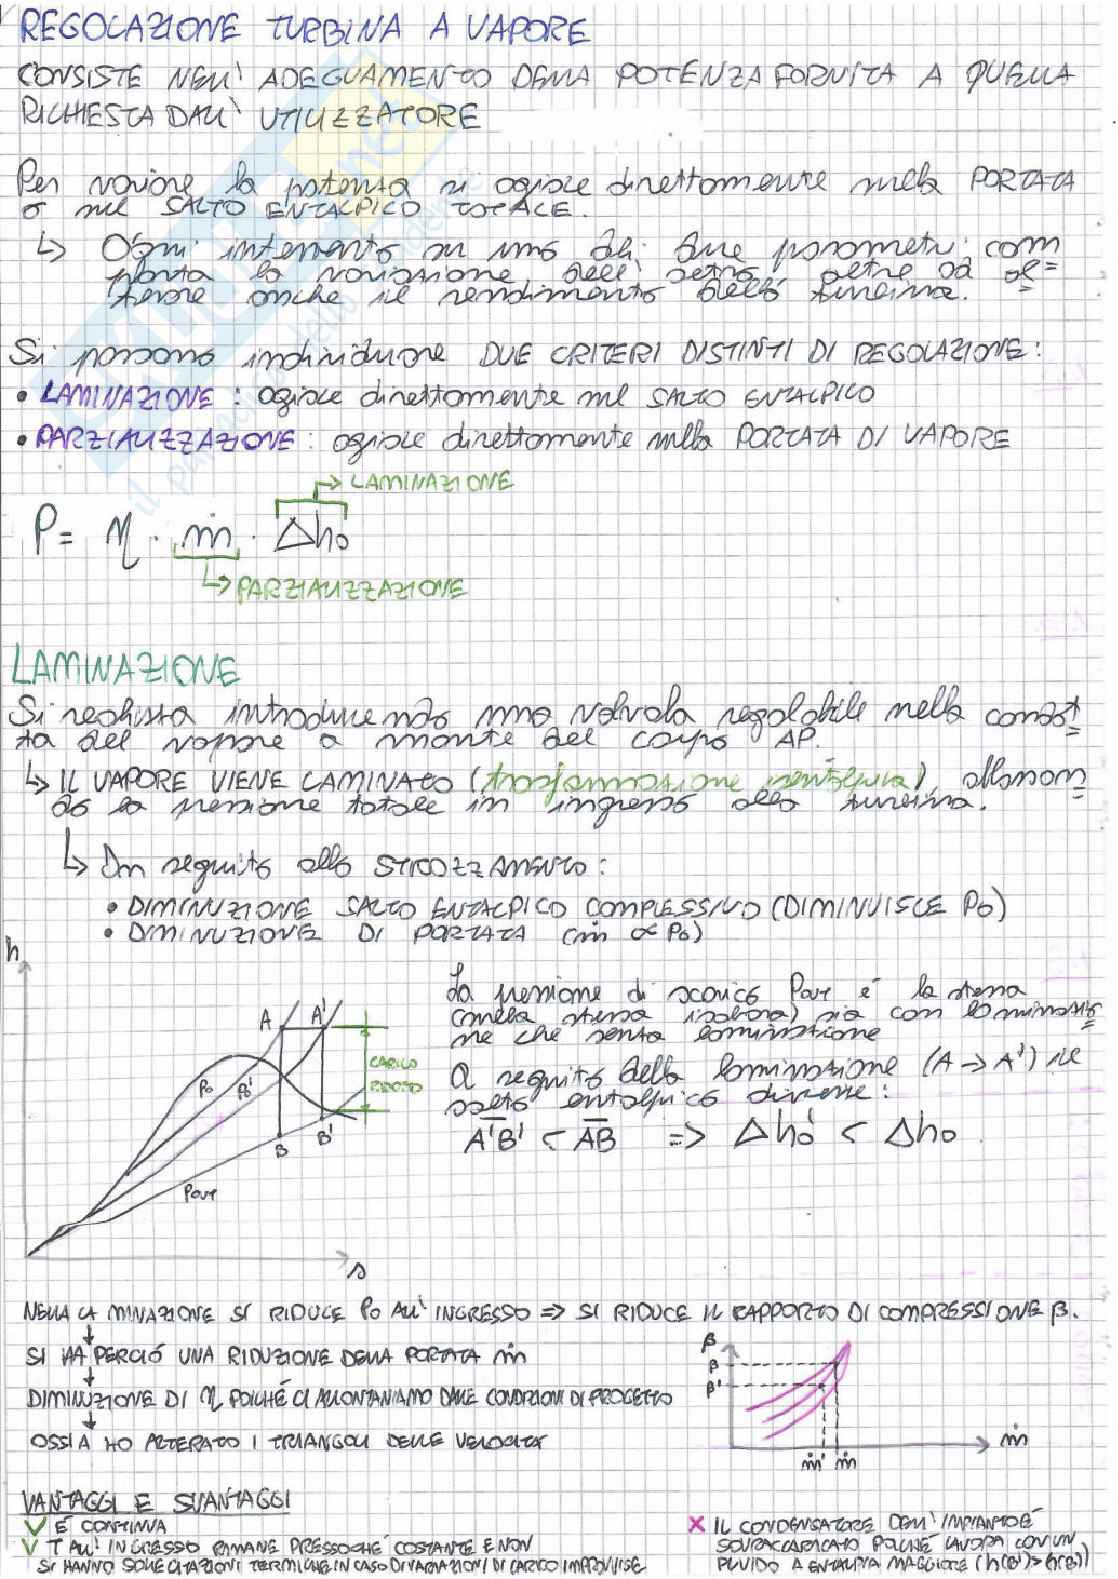 REGOLAZIONE TURBINA A VAPORE
CONSISTE NELL' ADEGUAMENTO DELLA POTENZA FORNITA A QUELLA
RICHIESTA DALL' UTILIZZATORE
Per variare la potenza si agisce direttamente sulla PORTATA
o sul SALTO ENTALPICO TOTALE.
↳ Ogni intervento su uno dei due parametri, com
porta la variazione dell' altro, oltre ad al=
terare anche il rendimento della turbina.
Si possono individuare DUE CRITERI DISTINTI DI REGOLAZIONE:
• LAMINAZIONE : agisce direttamente sul SALTO ENTALPICO
• PARZIALIZZAZIONE: agisce direttamente sulla PORTATA DI VAPORE
→ LAMINAZIONE
P = η · ṁ · Δh₀
↳ PARZIALIZZAZIONE
LAMINAZIONE
Si realizza introducendo una valvola regolabile nella condot=
ta del vapore a monte del corpo AP.
↳ IL VAPORE VIENE LAMINATO (trasformazione isentalpica), abbassan=
do la pressione totale in ingresso alla turbina.
↳ In seguito allo STROZZAMENTO:
• DIMINUZIONE SALTO ENTALPICO COMPLESSIVO (DIMINUISCE P₀)
• DIMINUZIONE DI PORTATA (ṁ ∝ P₀)
h
A A'
P₀ P₀'
CARICO
RIDOTTO
B B'
Pout
s
La pressione di scarico Pout è la stessa
(nella stessa isobara) sia con laminazio=
ne che senza laminazione
A seguito della laminazione (A → A') il
salto entalpico diviene:
A'B' < AB => Δh₀' < Δh₀.
NELLA LAMINAZIONE SI RIDUCE P₀ ALL' INGRESSO => SI RIDUCE IL RAPPORTO DI COMPRESSIONE β.
SI HA PERCIÓ UNA RIDUZIONE DELLA PORTATA ṁ
DIMINUZIONE DI η POICHÉ CI ALLONTANIAMO DALLE CONDIZIONI DI PROGETTO
OSSIA HO ALTERATO I TRIANGOLI DELLE VELOCITÀ
β
β
β'
ṁ' ṁ
ṁ
VANTAGGI E SVANTAGGI
V É CONTINUA
V T ALL' INGRESSO RIMANE PRESSOCHÉ COSTANTE E NON
SI HANNO SOLLECITAZIONI TERMICHE IN CASO DI VARIAZIONI DI CARICO IMPROVVISE
X IL CONDENSATORE DELL' IMPIANTO É
SOVRACCARICATO POICHÉ LAVORA CON UN
FLUIDO A ENTALPIA MAGGIORE (h(B') > h(B))